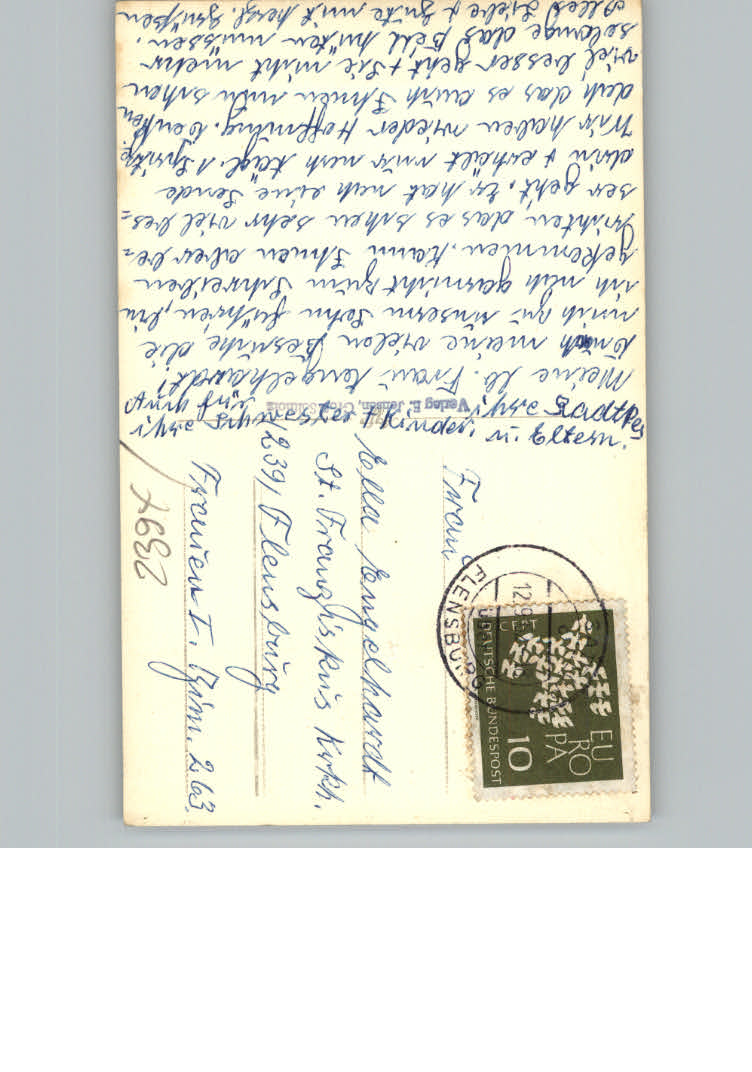 Meine lb. Frau Engelhardt!
Durch meine vielen Besuche die
mich zu unserm Sohn führen, bin
ich noch garnicht zum Schreiben
gekommen. Kann Ihnen aber be=
richten das es schon sehr viel bes=
ser geht. Er hat noch eine Sonde
drin + erhält nur noch tägl. 1 Spritze
Wir haben wieder Hoffnung. Denken
doch das es auch Ihnen nun schon
viel besser geht + Sie nicht mehr
solange das Bett hüten müssen.
Alles Liebe + Gute mit herzl. Grüßen
Ihre Radtkes
Kinder u. Eltern.
Verlag E. Jensen, Großsoltholz
Frau
Ella Engelhardt
St. Franziskus Krkh.
239/ Flensburg
Frauen I. Zim. 263.
2397
FLENSBURG
EUROPA
10
CEPT
DEUTSCHE BUNDESPOST